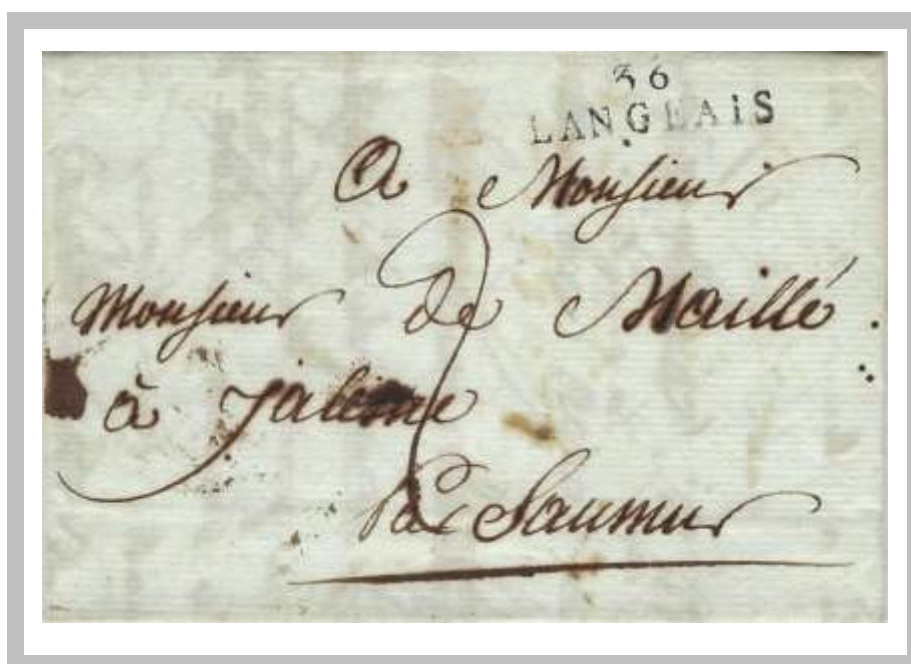 36
LANGEAIS
A Monsieur
Monsieur de Maillé
à Jalesne
Par Saumur